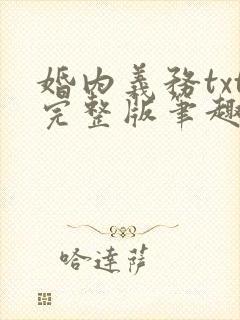 婚内義務txt
完整版筆趣
哈達薩